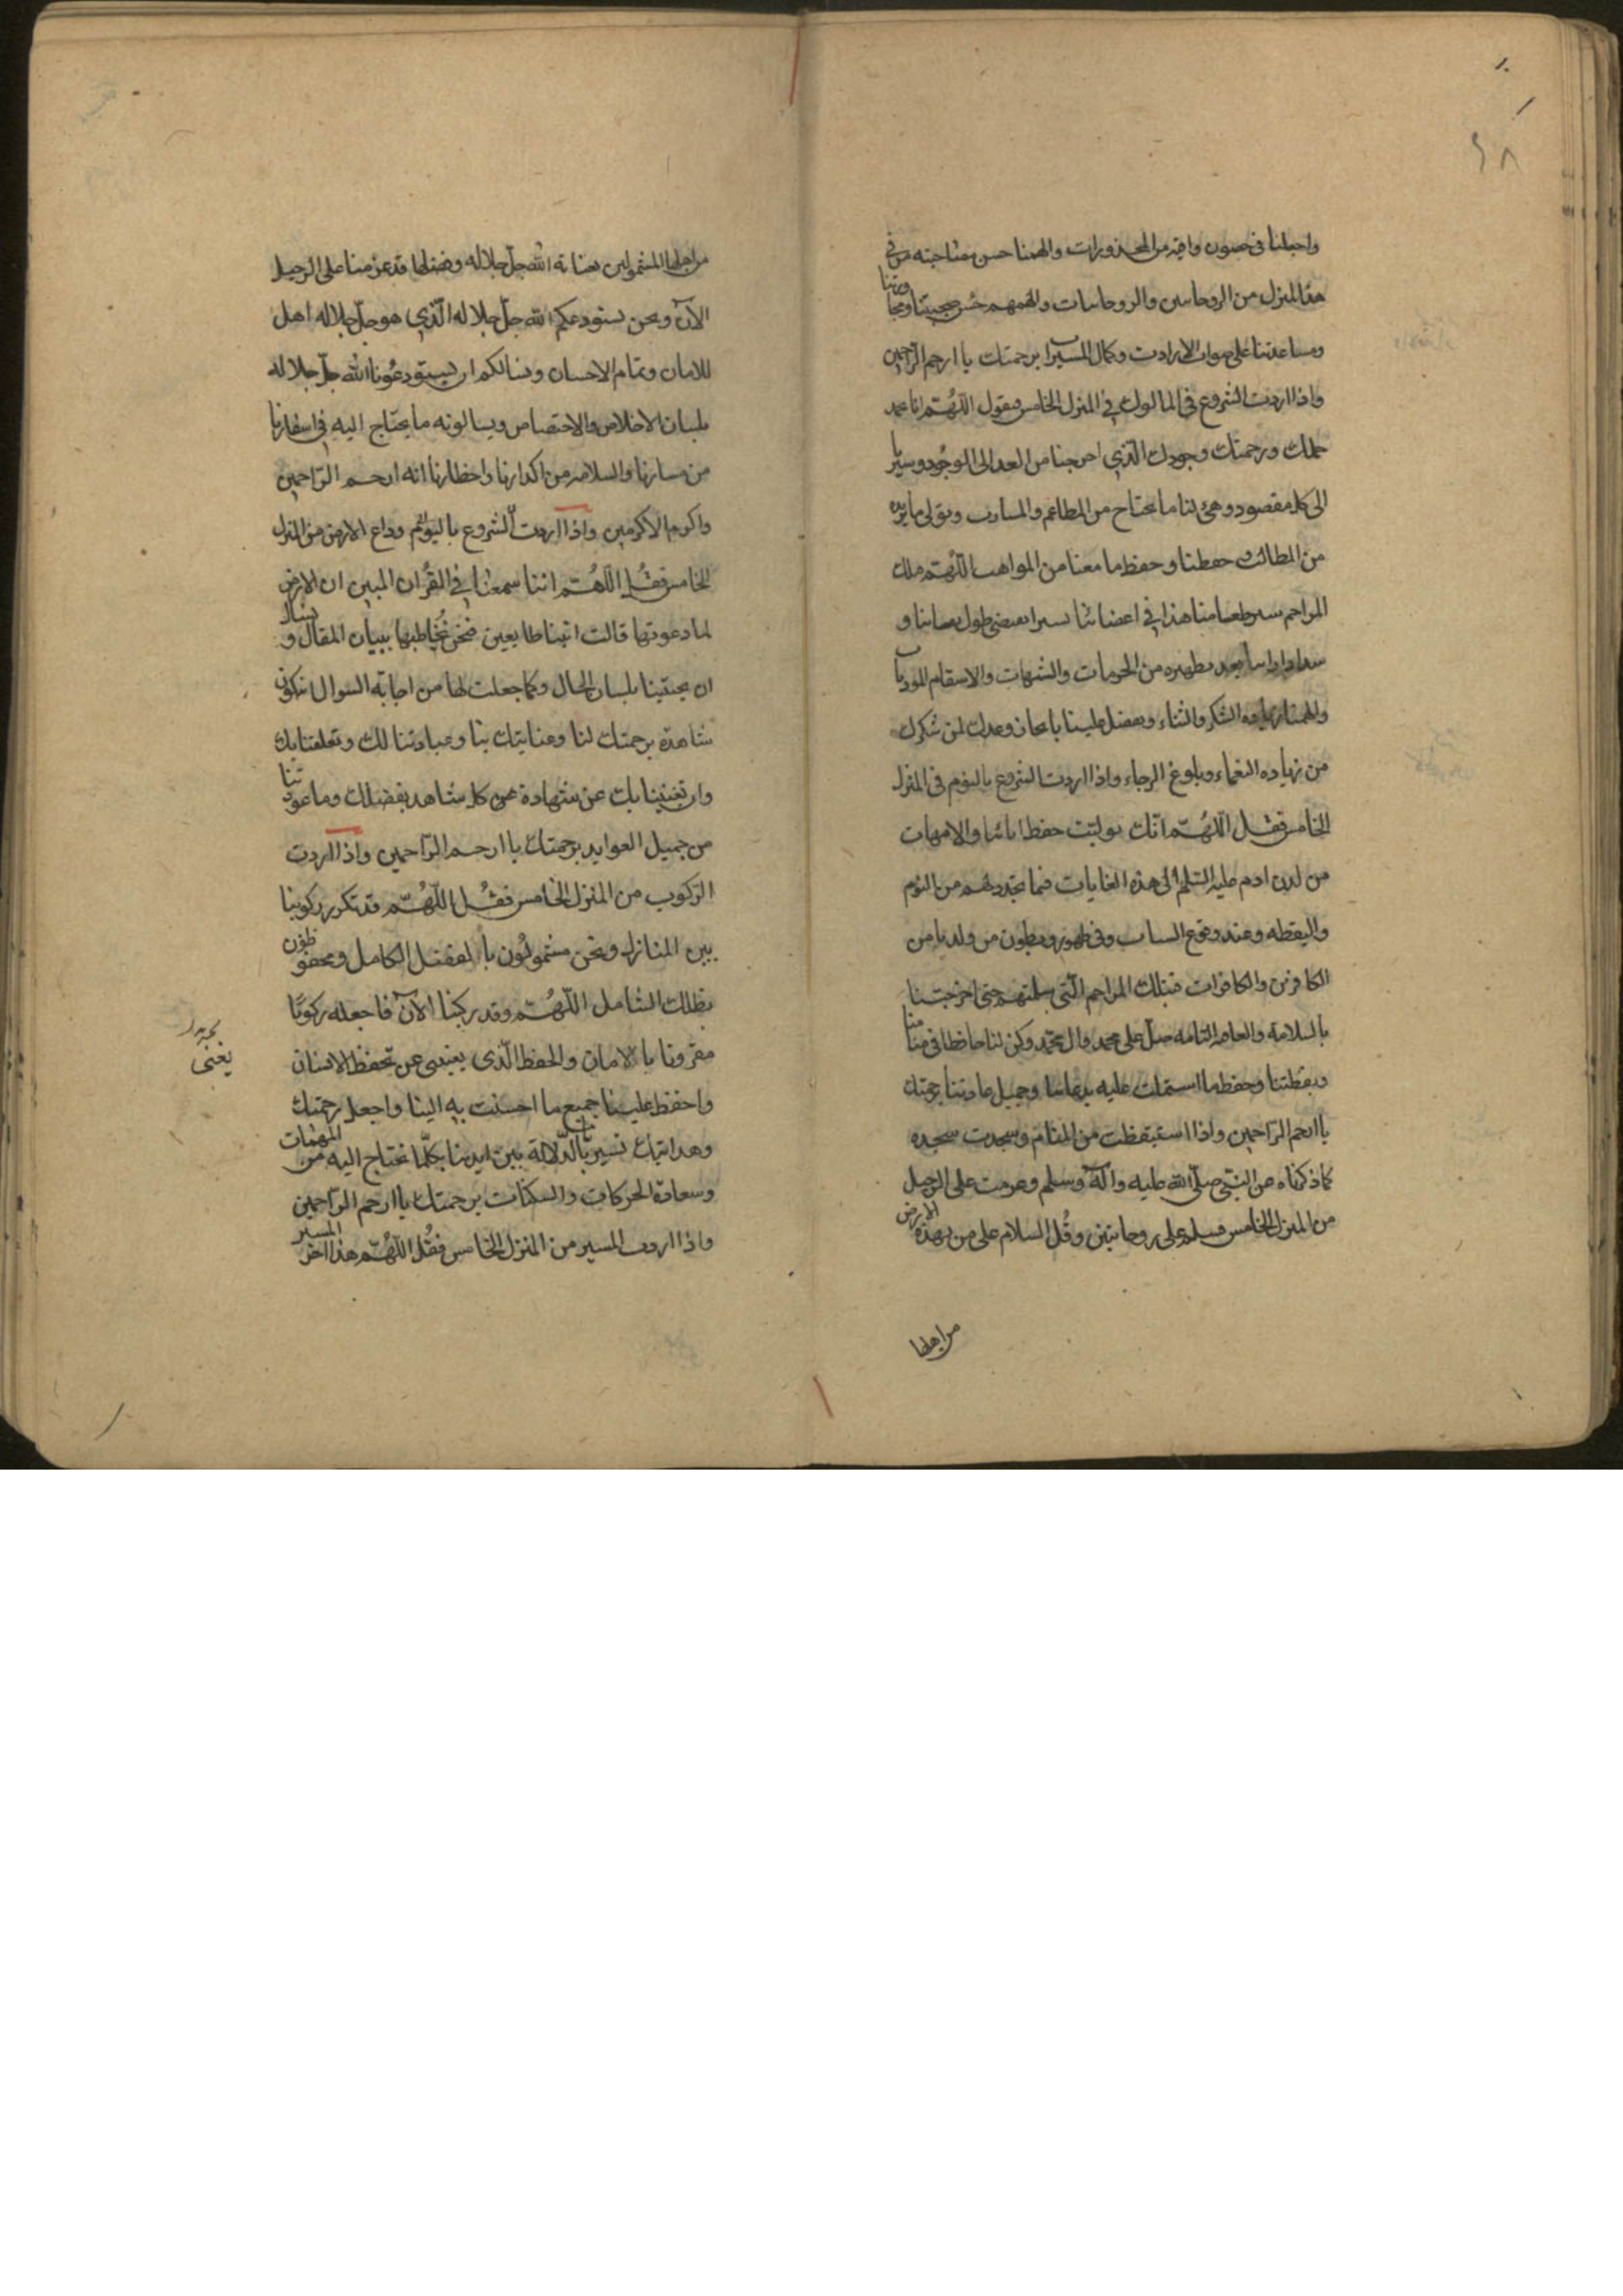 ٦٨
واجعلنا فى حصون واقية من المحذورات والهمنا حسن مصاحبته من فى
هذا المنزل من الروحانيين والروحانيات والهمهم حسن صحبتنا ومجاورتنا
ومساعدتنا على صواب الارادت وكمال المسير برحمتك يا ارحم الراحمين
واذا اردت الشروع فى الماكول فى المنزل الخامس فيقول اللهم انا نحمد
حلمك ورحمتك وجودك الذي اخرجنا من العدم الى الوجود وسيرنا
الى كل مقصود وهيئ لنا ما يحتاج من المطاعم والمشارب وتولى ما نريده
من المطالب حفظنا وحفظ ما معنا من المواهب اللهم فبتلك
المراحم سير طعامنا هذا فى اعضائنا تسيرا يقتضى طول بقائنا و
بعد تطهيره من الحرمات والشبهات والاسقام الموذيات
والهمنا الشكر والثناء وتفضل علينا بانجاز وعدك لمن شكرك
من زيادة النعماء وبلوغ الرجاء واذا اردت الشروع بالنوم فى المنزل
الخامس فقل اللهم انك توليت حفظ ابائنا والامهات
من لدن ادم عليه السلم الى هذه الغايات فيما يتجدد لهم من النوم
واليقظه وعند وقوع السبات وفى ظهور وبطون من ولدنا من
الكافرين والكافرات فبتلك المراحم التى سلمتهم حتى اخرجتنا
بالسلامة والعافية التامه صل على محمد وال محمد وكن لنا حافظا فى منامنا
ويقظتنا وحفظ ما اشتملت عليه وجميل عادتنا برحمتك
يا ارحم الراحمين واذا استيقظت من المنام وسجدت سجده
كما ذكرناه عن النبى صلى الله عليه وآله وسلم وعزمت على الرحيل
من المنزل الخامس فسلم على روحانيين وقل السلام على من بهذه الارض
من اهلها
من اهلها المشمولين بعناية الله جل جلاله وفضلها قد عزمنا على الرحيل
الآن ونحن نستودعكم الله جل جلاله الذي هو جل جلاله اهل
للامان وتمام الاحسان ونسالكم ان تستودعونا الله جل جلاله
بلسان الاخلاص والاختصاص ويسالونه ما يحتاج اليه فى اسفارنا
من مسارنا والسلامه من اكدارنا واخطارنا انه ارحم الراحمين
واكرم الاكرمين واذا اردت الشروع باليوم وداع الارض من المنزل
الخامس فقل اللهم اننا سمعنا فى القرآن المبين ان الارض
لما دعوتها قالت اتينا طايعين فنحن نخاطبها ببيان المقال ونسالك
ان تجيبنا بلسان الحال وكما جعلت لها من اجابة السوال ان تكون
شاهدة برحمتك لنا وعنايتك بنا وعبادتنا لك وتعلقنا بك
وان تغنينا بك عن شهادة عن كل شاهد بفضلك وما عودتنا
من جميل العوايد برحمتك يا ارحم الراحمين واذا اردت
الركوب من المنزل الخامس فقل اللهم قد تكرر ركوبنا
بين المنازل ونحن مشمولون بالفضل الكامل ومحفوظون
بظلك الشامل اللهم وقد ركبنا الآن فاجعله ركوبًا
مقرونا بالامان والحفظ الذى يغنى عن تحفظ الانسان
يغنى
واحفظ علينا جميع ما احسنت به الينا واجعل رحمتك
وهدايتك تسير بالدلالة بين ايدينا بكلما نحتاج اليه من المهمات
وسعادة الحركات والسكنات برحمتك يا ارحم الراحمين
واذا اردت المسير من المنزل الخامس فقل اللهم هذا اخر المسير